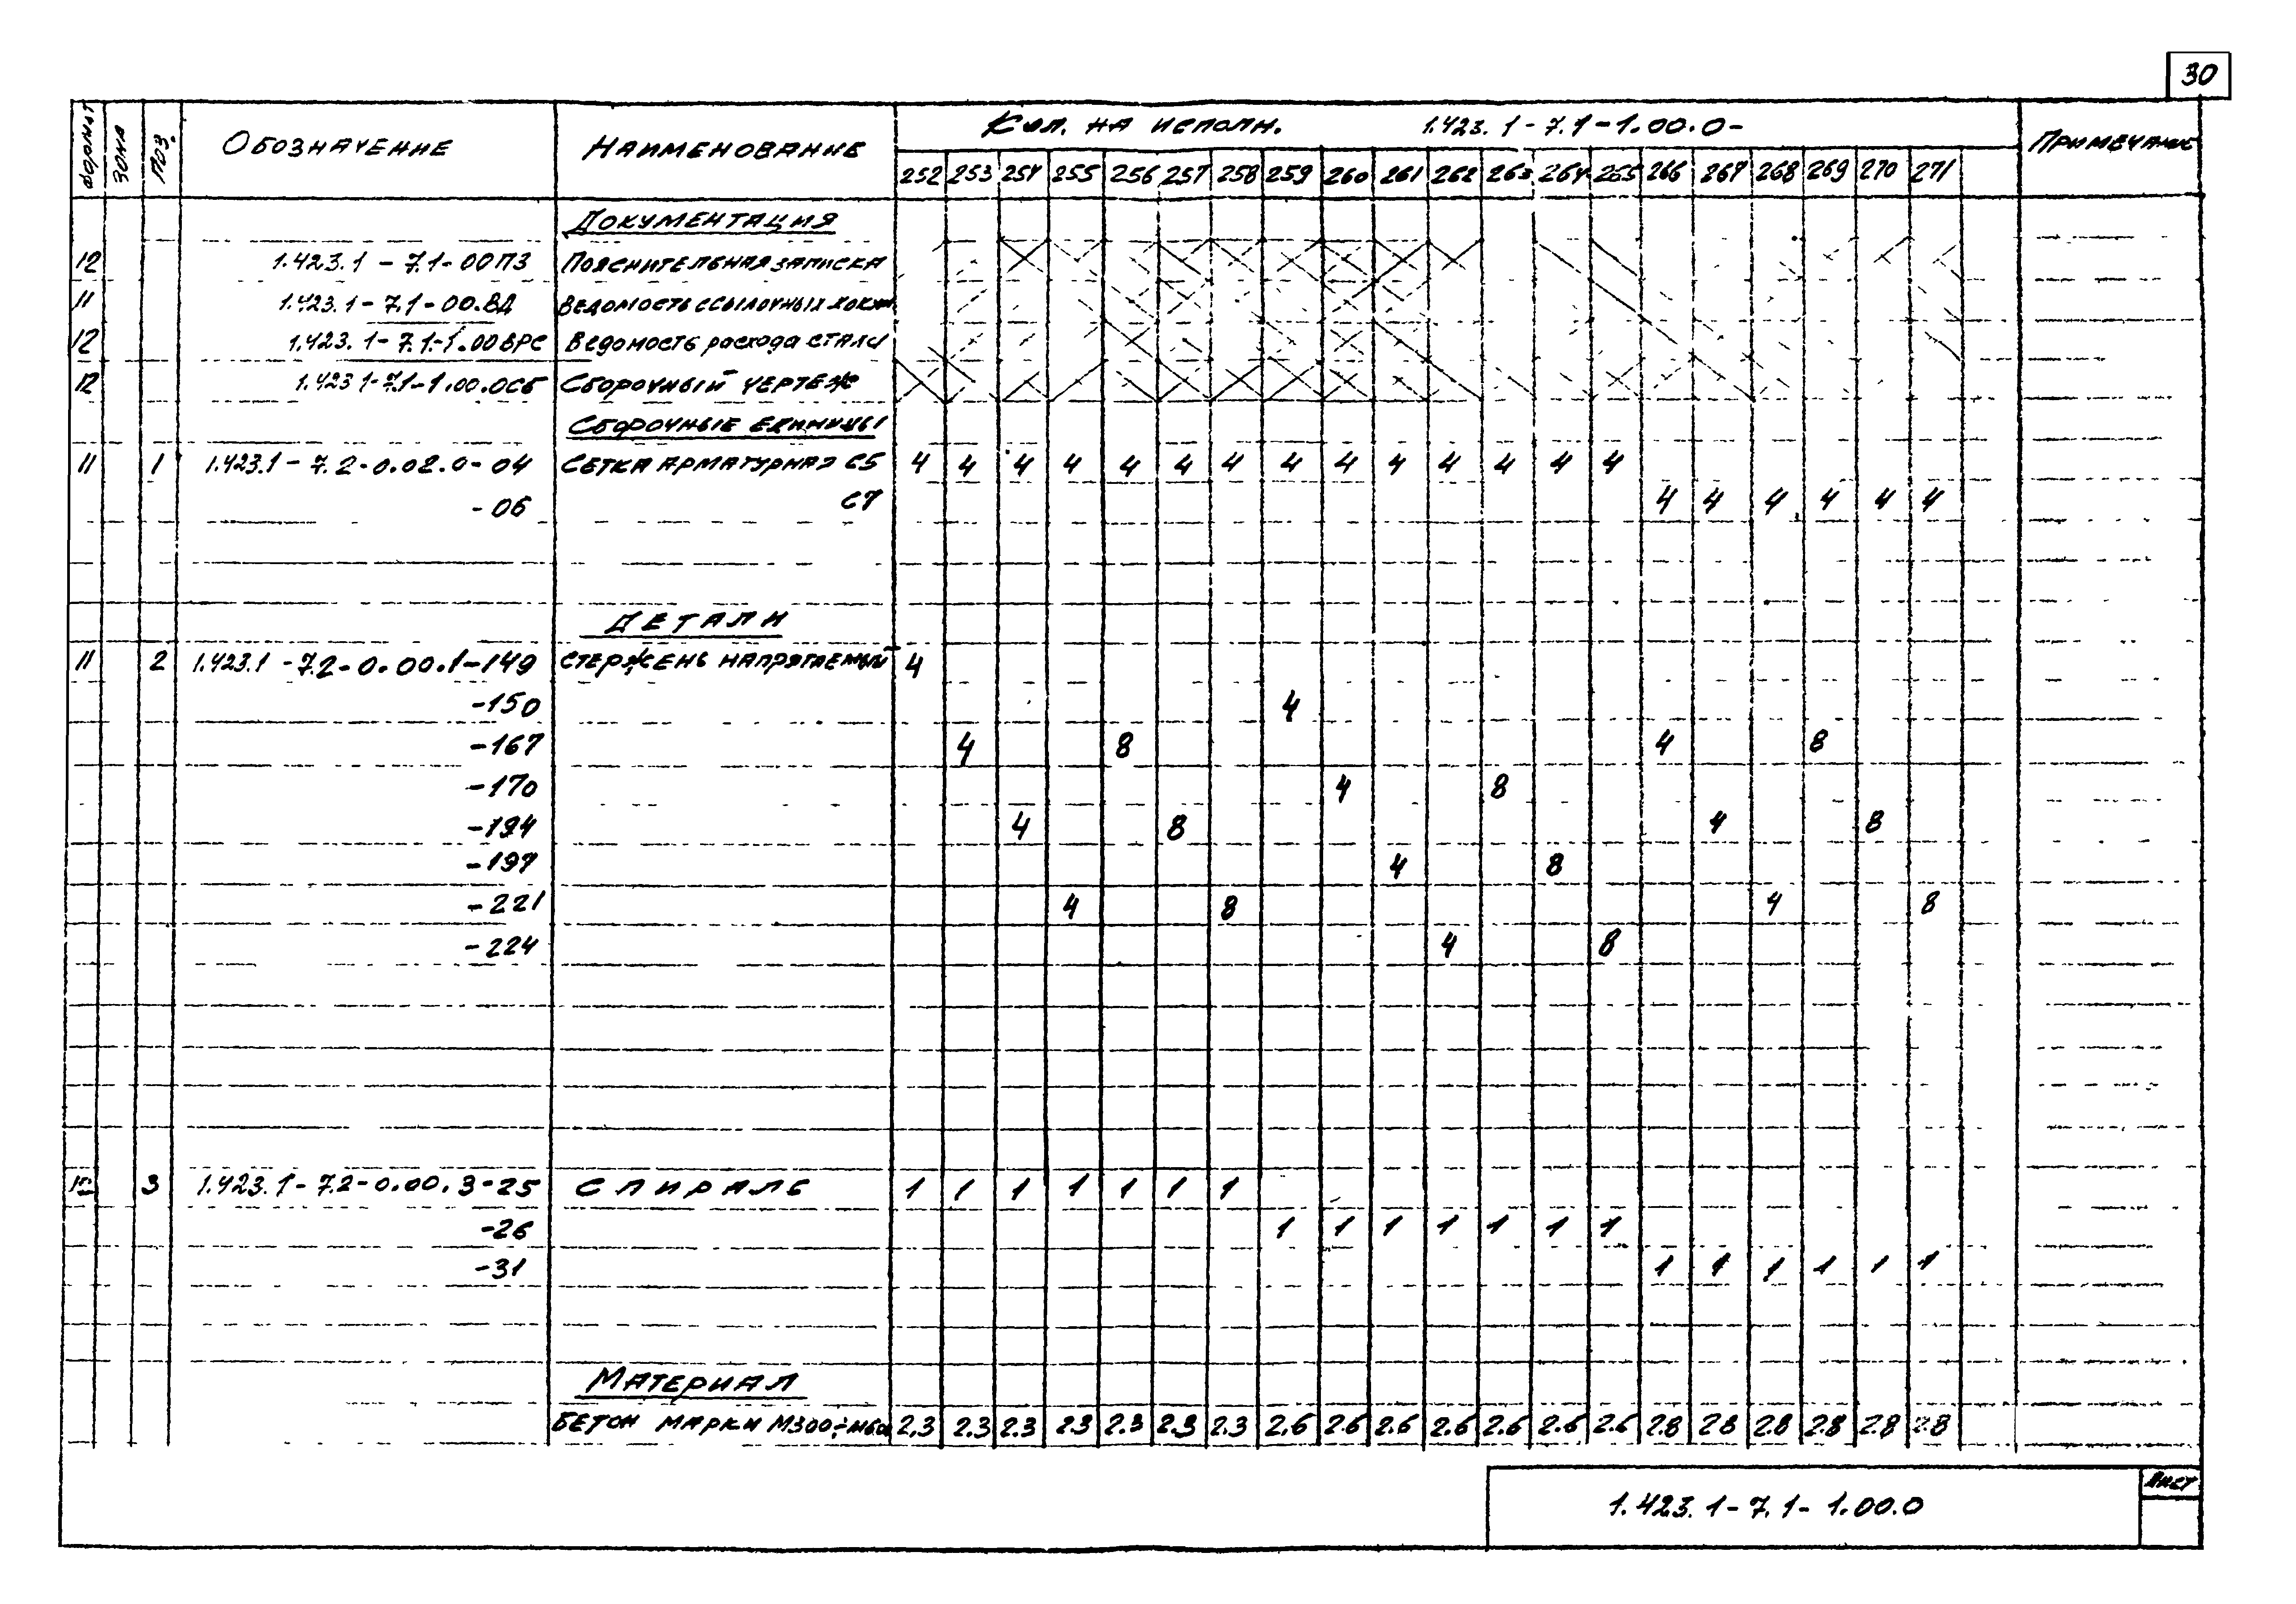 30
Формат Зона Поз. Обозначение Наименование Кол. на исполн. 1.423.1-7.1-1.00.0- Примечание
252 253 254 255 256 257 258 259 260 261 262 263 264 265 266 267 268 269 270 271
Документация
12 1.423.1-7.1-00ПЗ Пояснительная записка
11 1.423.1-7.1-00.ВД Ведомость ссылочных
12 1.423.1-7.1-1.00ВРС Ведомость расхода стали
12 1.423 1-7.1-1.00.0СБ Сборочный чертеж
Сборочные единицы
11 1 1.423.1-7.2-0.02.0-04 Сетка арматурная С5 4 4 4 4 4 4 4 4 4 4 4 4 4 4
-06 С7 4 4 4 4 4 4
Детали
11 2 1.423.1-7.2-0.00.1-149 Стержень напрягаемый 4
-150 4
-167 4 8 4 8
-170 4 8
-194 4 8 4 8
-197 4 8
-221 4 8 4 8
-224 4 8
3 1.423.1-7.2-0.00.3-25 Спираль 1 1 1 1 1 1 1
-26 1 1 1 1 1 1 1
-31 1 1 1 1 1 1
Материал
Бетон марки М300÷М600 2.3 2.3 2.3 2.3 2.3 2.3 2.3 2.6 2.6 2.6 2.6 2.6 2.6 2.6 2.8 2.8 2.8 2.8 2.8 2.8
Лист
1.423.1-7.1-1.00.0